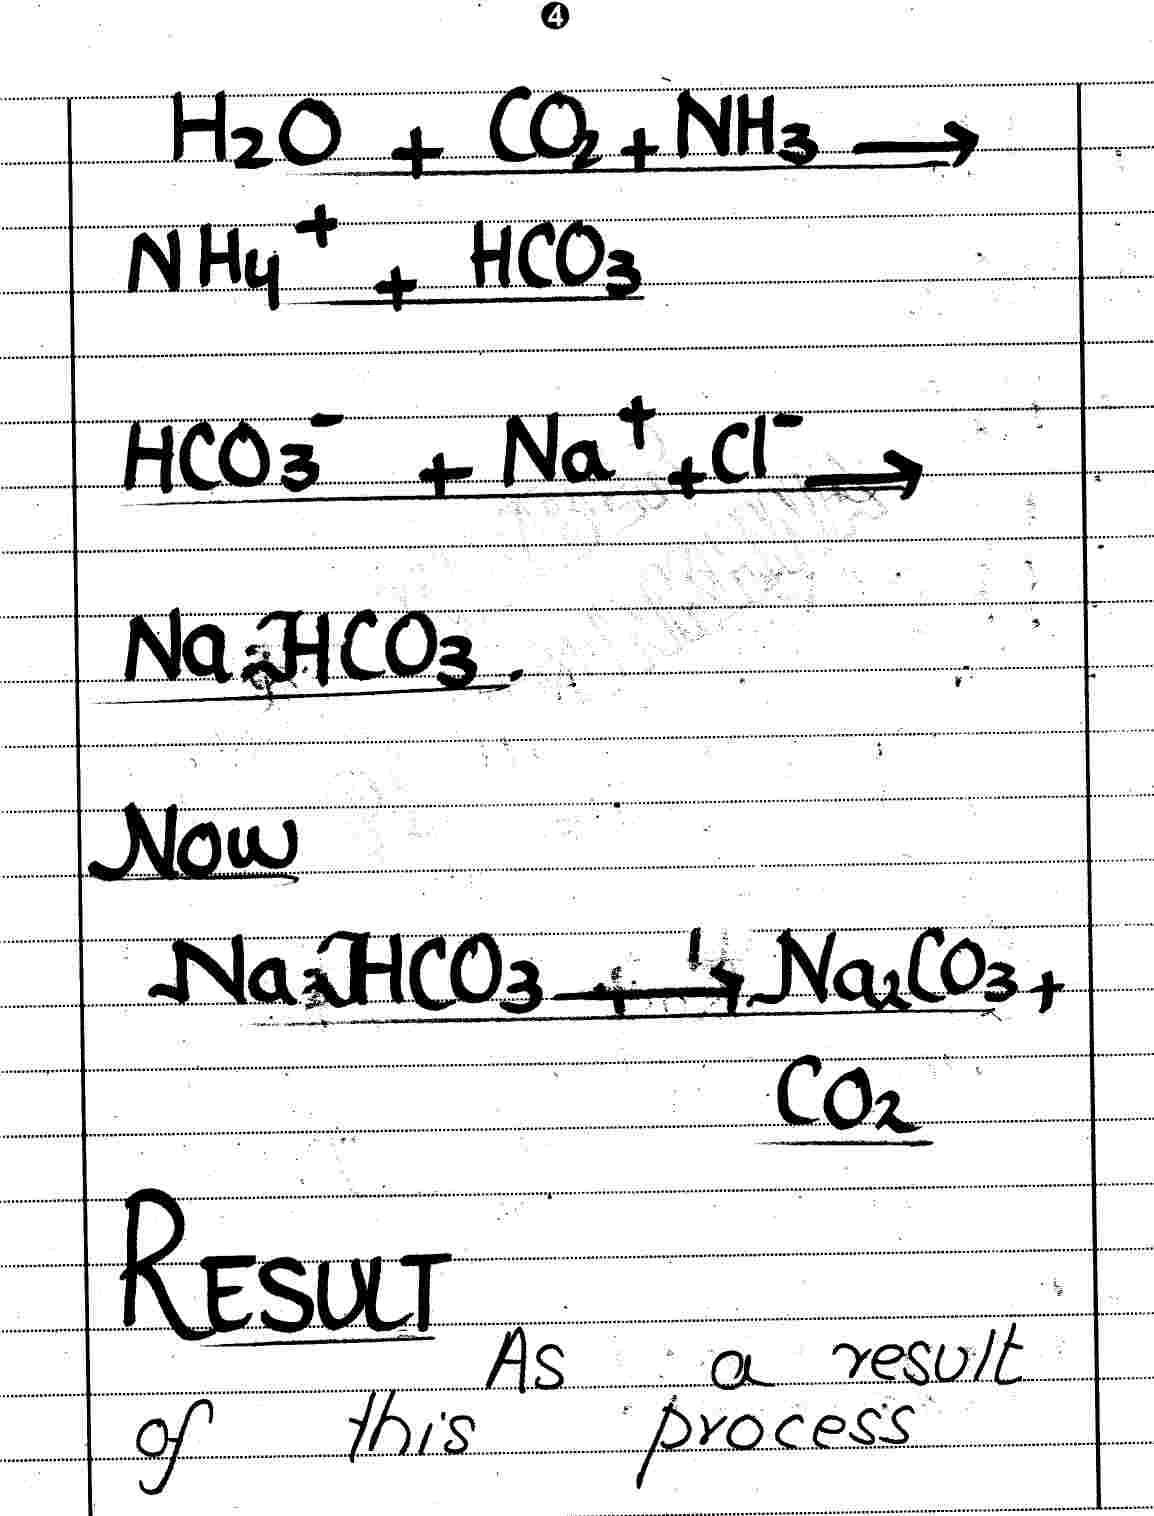 4
H₂O + CO₂ + NH₃ →
NH₄⁺ + HCO₃
HCO₃⁻ + Na⁺ + Cl⁻ →
Na₂HCO₃.
Now
Na₂HCO₃ → Na₂CO₃ +
CO₂
RESULT
As a result
of this process